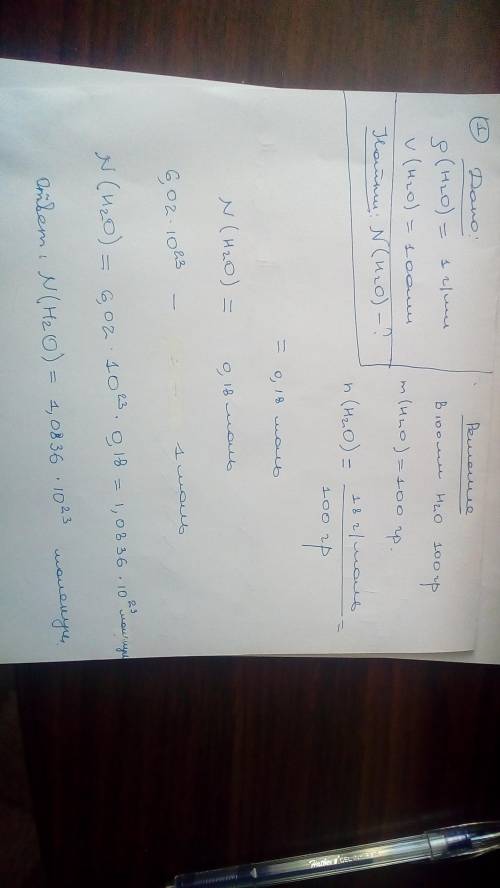 1 Дано:
ρ(H₂O) = 1 г/мл
V(H₂O) = 100мл
Найти: N(H₂O) – ?
Решение
В 100мл H₂O 100гр
m(H₂O) = 100 гр.
n(H₂O) = 18 г/моль / 100 гр =
= 0,18 моль
N(H₂O) = 0,18 моль
6,02 · 10²³ – 1 моль
N(H₂O) = 6,02 · 10²³ · 0,18 = 1,0836 · 10²³ молекул
Ответ: N(H₂O) = 1,0836 · 10²³ молекул.